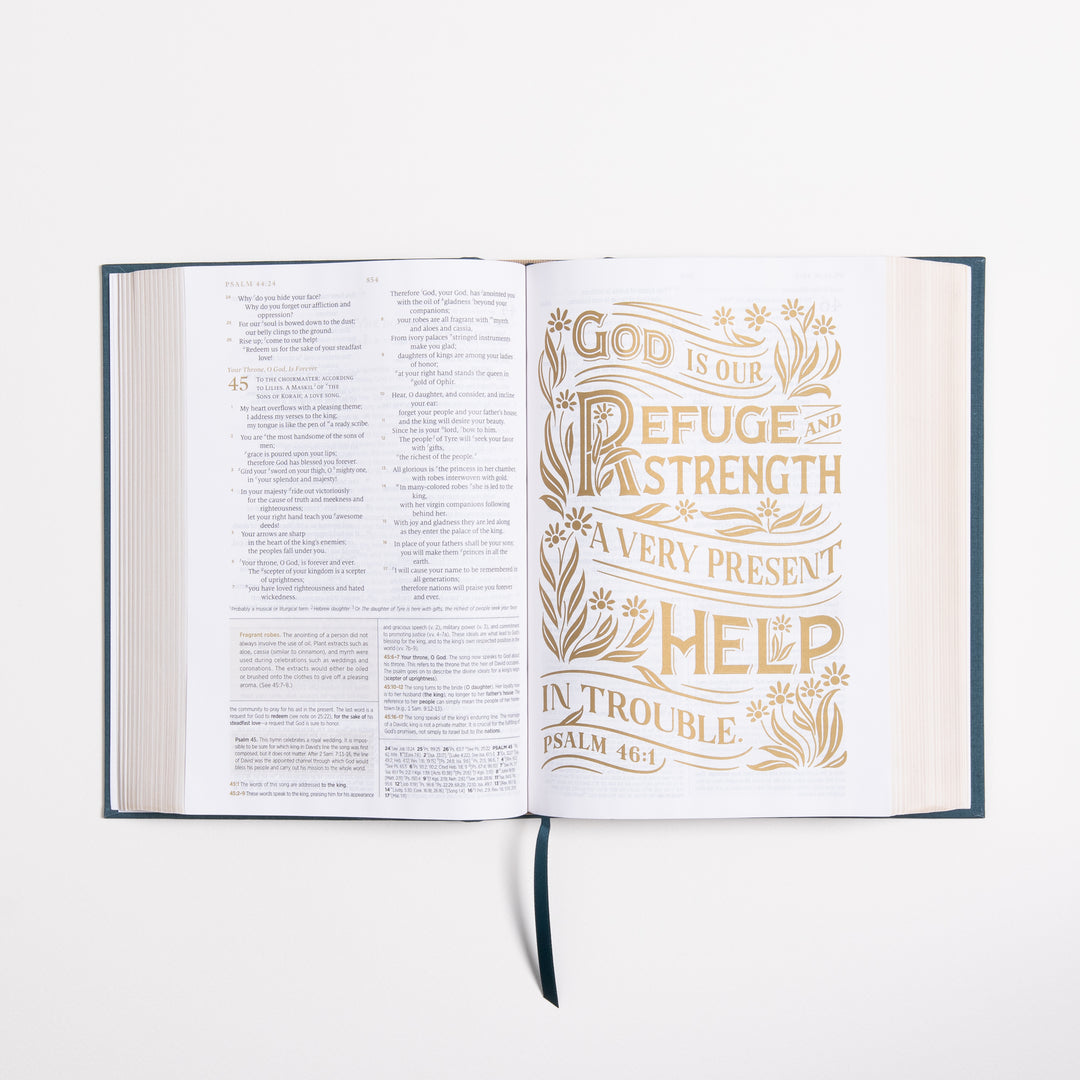 PSALM 44:24
854
24 Why do you hide your face?
Why do you forget our affliction and
oppression?
25 For our soul is bowed down to the dust;
our belly clings to the ground.
26 Rise up; come to our help!
Redeem us for the sake of your steadfast
love!
Your Throne, O God, Is Forever
45 TO THE CHOIRMASTER: ACCORDING
TO LILIES. A MASKIL OF THE
SONS OF KORAH; A LOVE SONG.
1 My heart overflows with a pleasing theme;
I address my verses to the king;
my tongue is like the pen of a ready scribe.
2 You are the most handsome of the sons of
men;
grace is poured upon your lips;
therefore God has blessed you forever.
3 Gird your sword on your thigh, O mighty one,
in your splendor and majesty!
4 In your majesty ride out victoriously
for the cause of truth and meekness and
righteousness;
let your right hand teach you awesome
deeds!
5 Your arrows are sharp
in the heart of the king's enemies;
the peoples fall under you.
6 Your throne, O God, is forever and ever.
The scepter of your kingdom is a scepter
of uprightness;
7 you have loved righteousness and hated
wickedness.
Therefore God, your God, has anointed you
with the oil of gladness beyond your
companions;
8 your robes are all fragrant with myrrh
and aloes and cassia.
From ivory palaces stringed instruments
make you glad;
9 daughters of kings are among your ladies
of honor;
at your right hand stands the queen in
gold of Ophir.
10 Hear, O daughter, and consider, and incline
your ear:
forget your people and your father's house,
11 and the king will desire your beauty.
Since he is your lord, bow to him.
12 The people of Tyre will seek your favor
with gifts,
the richest of the people.
13 All glorious is the princess in her chamber,
with robes interwoven with gold.
14 In many-colored robes she is led to the
king,
with her virgin companions following
behind her.
15 With joy and gladness they are led along
as they enter the palace of the king.
16 In place of your fathers shall be your sons;
you will make them princes in all the
earth.
17 I will cause your name to be remembered in
all generations;
therefore nations will praise you forever
and ever.
1 Probably a musical or liturgical term 2 Hebrew daughter 3 Or The daughter of Tyre is here with gifts, the richest of people seek your favor
Fragrant robes. The anointing of a person did not
always involve the use of oil. Plant extracts such as
aloe, cassia (similar to cinnamon), and myrrh were
used during celebrations such as weddings and
coronations. The extracts would either be oiled
or brushed onto the clothes to give off a pleasing
aroma. (See 45:7–8.)
the community to pray for his aid in the present. The last word is a
request for God to redeem (see note on 25:22), for the sake of his
steadfast love—a request that God is sure to honor.
Psalm 45. This hymn celebrates a royal wedding. It is impos-
sible to be sure for which king in David's line the song was first
composed, but it does not matter. After 2 Sam. 7:11–16, the line
of David was the appointed channel through which God would
bless his people and carry out his mission to the whole world.
45:1 The words of this song are addressed to the king.
45:2–9 These words speak to the king, praising him for his appearance
and gracious speech (v. 2), military power (v. 3), and commitment
to promoting justice (vv. 4–7a). These ideals are what lead to God's
blessing for the king, and to the king's own respected position in the
world (vv. 7b–9).
45:6–7 Your throne, O God. The song now speaks to God about
his throne. This refers to the throne that the heir of David occupies.
The psalm goes on to describe the divine ideals for a king's reign
(scepter of uprightness).
45:10–12 The song turns to the bride (O daughter). Her loyalty now
is to her husband (the king), no longer to her father's house. The
reference to her people can simply mean the people of her home
town (e.g., 1 Sam. 9:12–13).
45:16–17 The song speaks of the king's enduring line. The marriage
of a Davidic king is not a private matter. It is crucial for the fulfilling of
God's promises, not simply to Israel but to the nations.
GOD IS OUR
REFUGE AND
STRENGTH
A VERY PRESENT
HELP
IN TROUBLE.
PSALM 46:1